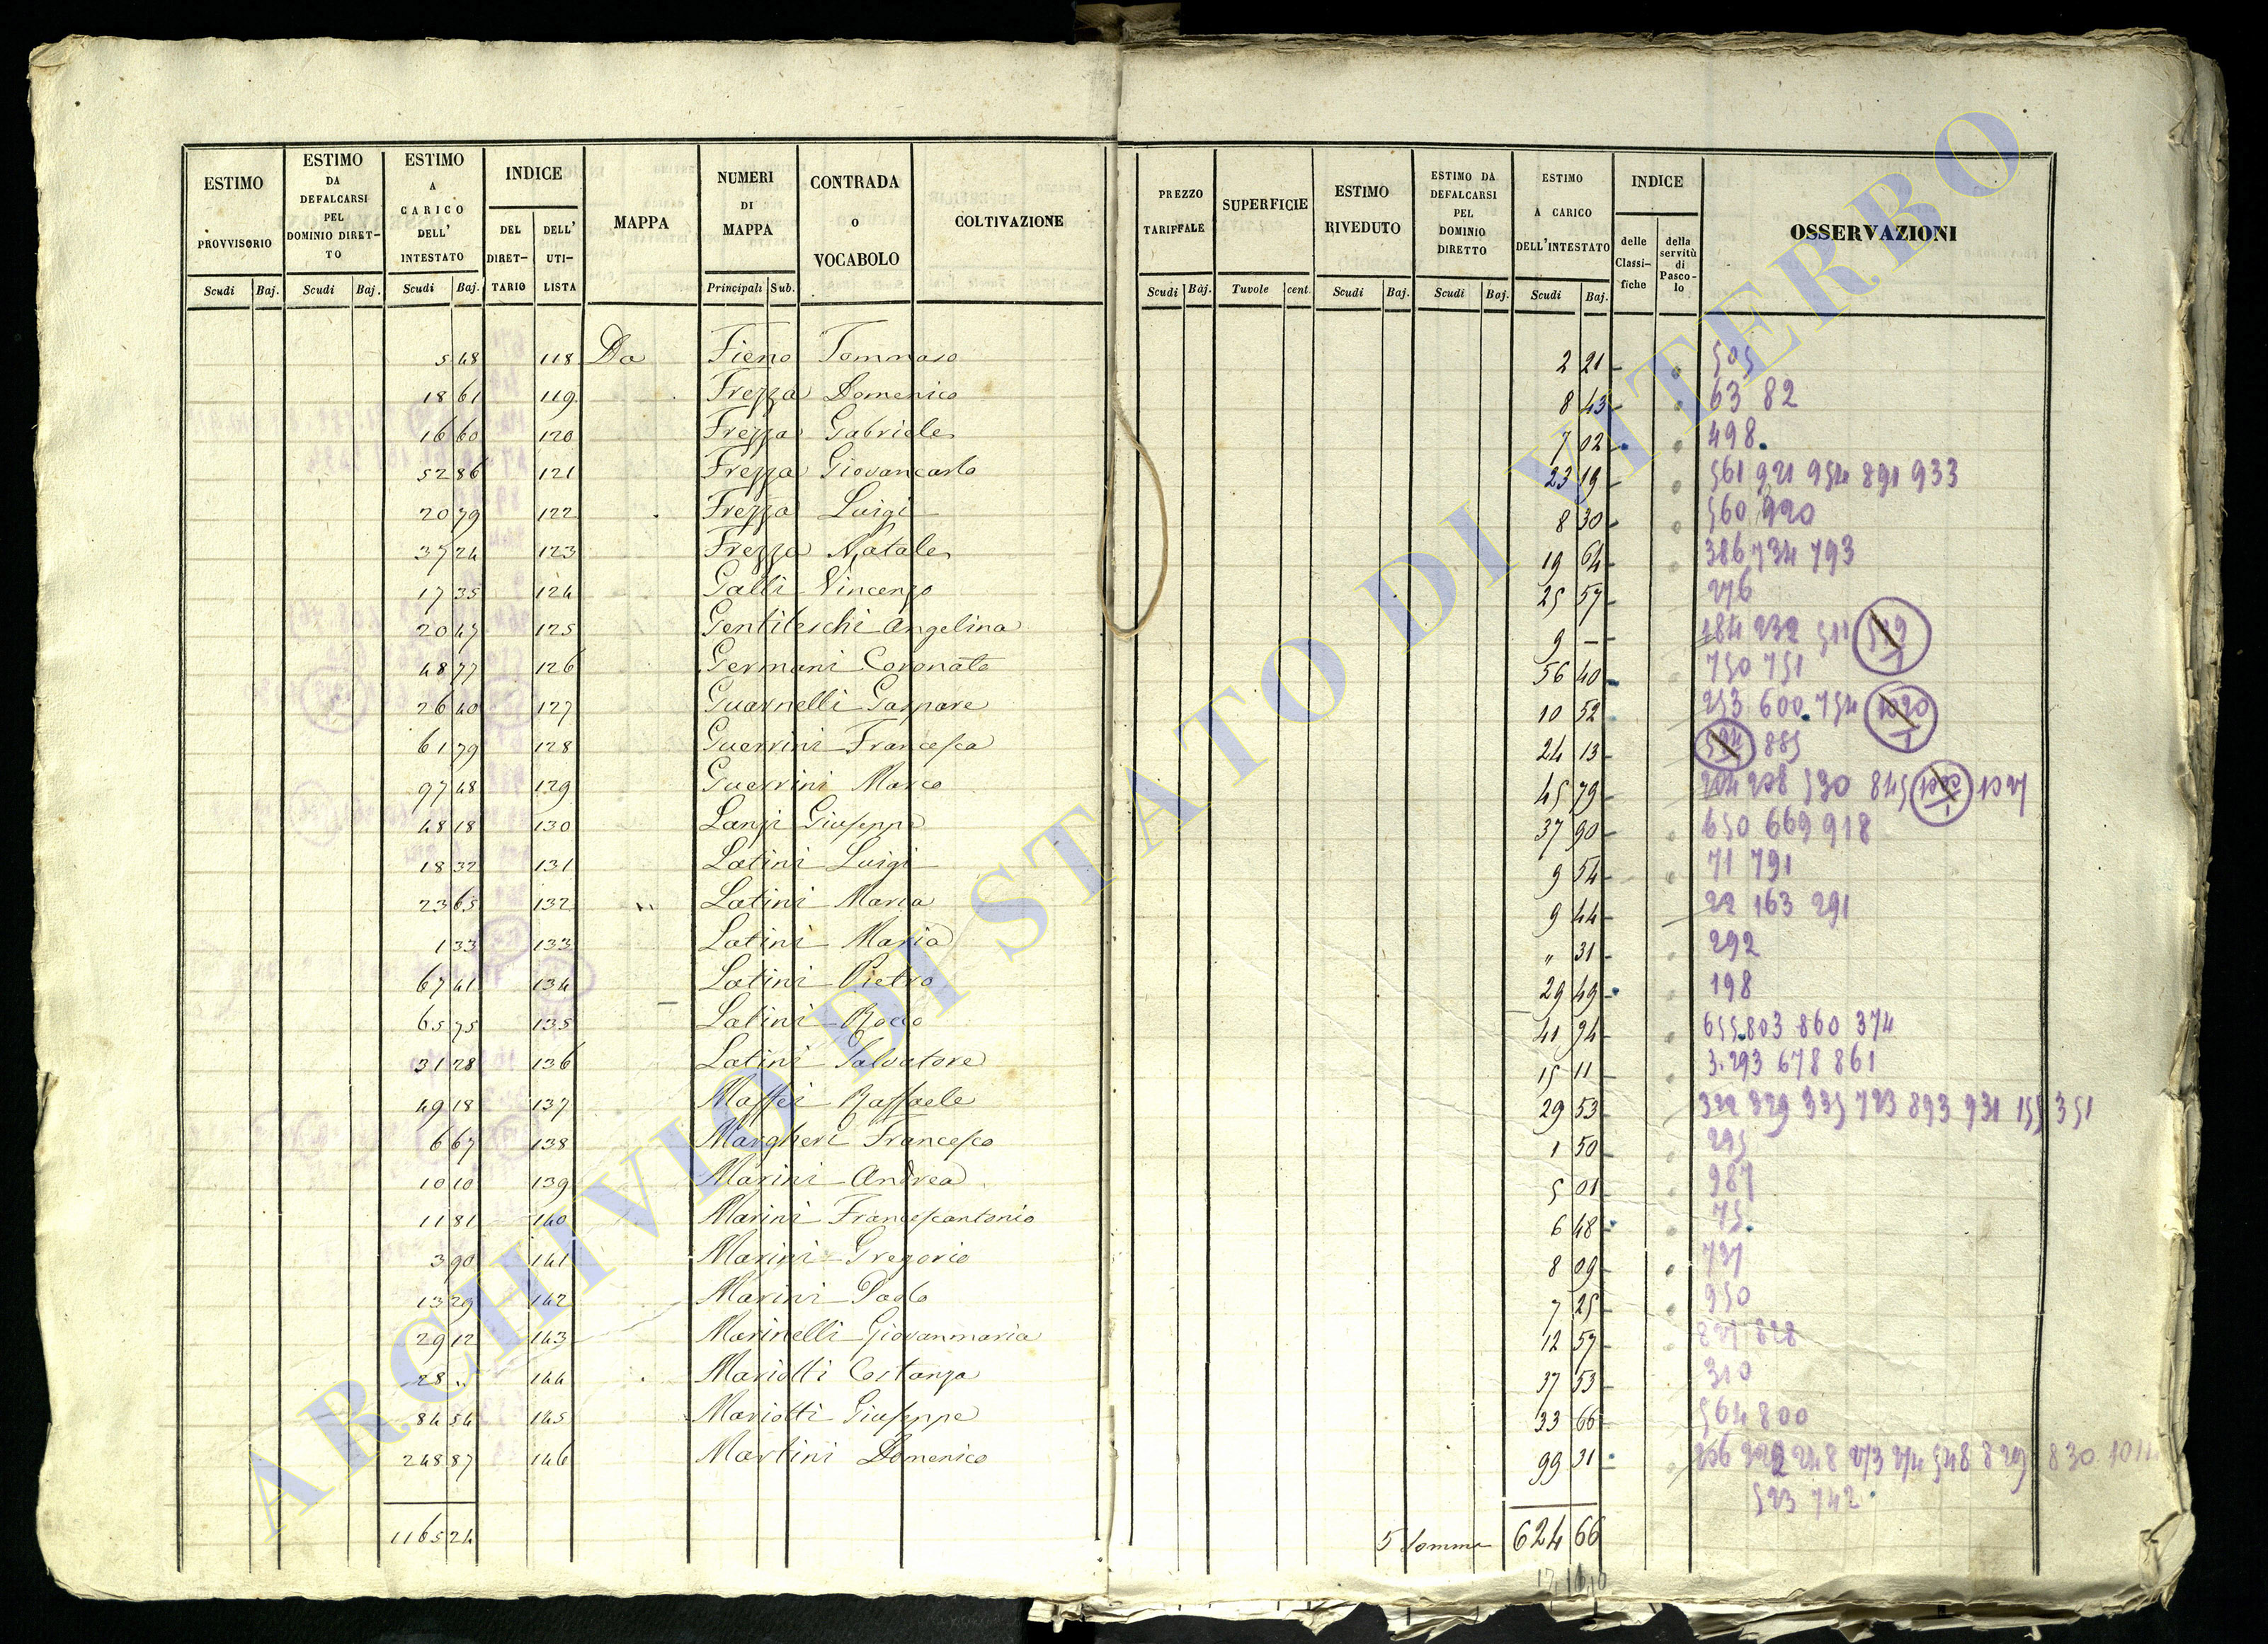 ESTIMO PROVVISORIO Scudi Baj.
ESTIMO DA DEFALCARSI PEL DOMINIO DIRET-TO Scudi Baj.
ESTIMO A CARICO DELL' INTESTATO Scudi Baj.
INDICE DEL DIRET-TARIO DELL' UTI-LISTA
MAPPA
NUMERI DI MAPPA Principali Sub.
CONTRADA o VOCABOLO
COLTIVAZIONE
PREZZO TARIFFALE Scudi Baj.
SUPERFICIE Tuvole cent.
ESTIMO RIVEDUTO Scudi Baj.
ESTIMO DA DEFALCARSI PEL DOMINIO DIRETTO Scudi Baj.
ESTIMO A CARICO DELL'INTESTATO Scudi Baj.
INDICE delle Classi-fiche della servitù di Pasco-lo
OSSERVAZIONI
5 48 118 Da Fieno Tommaso 2 21 505
18 61 119 Frezza Domenico 8 43 63 82
16 60 120 Frezza Gabriele 7 02 498
52 86 121 Frezza Giovancarlo 23 19 561 921 954 891 933
20 79 122 Frezza Luigi 8 30 560 920
37 24 123 Frezza Natale 19 64 386 734 793
17 35 124 Galli Vincenzo 25 57 276
20 47 125 Gentileschi Angelina 9 – 184 232 511 519/1
48 77 126 Germani Coronato 56 40 750 751
26 40 127 Guarnelli Gaspare 10 52 253 600 754 1020/1
61 79 128 Guerrini Francesca 24 13 594 885
97 48 129 Guerrini Marco 45 79 204 208 530 845 1027
48 18 130 Lanzi Giuseppe 37 90 650 669 918
18 32 131 Latini Luigi 9 54 71 791
23 65 132 Latini Maria 9 44 22 163 291
1 33 133 Latini Maria " 31 292
67 41 134 Latini Pietro 29 49 198
65 75 135 Latini Rocco 41 94 655 803 860 374
31 28 136 Latini Salvatore 15 11 3. 293 678 861
49 18 137 Maffei Raffaele 29 53 322 329 335 723 893 931 155 351
6 67 138 Margheri Francesco 1 50 295
10 10 139 Marini Andrea 5 01 987
11 81 140 Marini Francescantonio 6 48 75
3 90 141 Marini Gregorio 8 09 737
13 29 142 Marini Paolo 7 25 950
29 12 143 Marinelli Giovanmaria 12 57 827 828
28 " 144 Mariotti Costanza 37 53 310
84 54 145 Mariotti Giuseppe 33 66 564 800
248 87 146 Martini Domenico 99 31 206 222 248 273 274 548 829 830
523 742
1165 24 Somma 624 66
ARCHIVIO DI STATO DI VITERBO